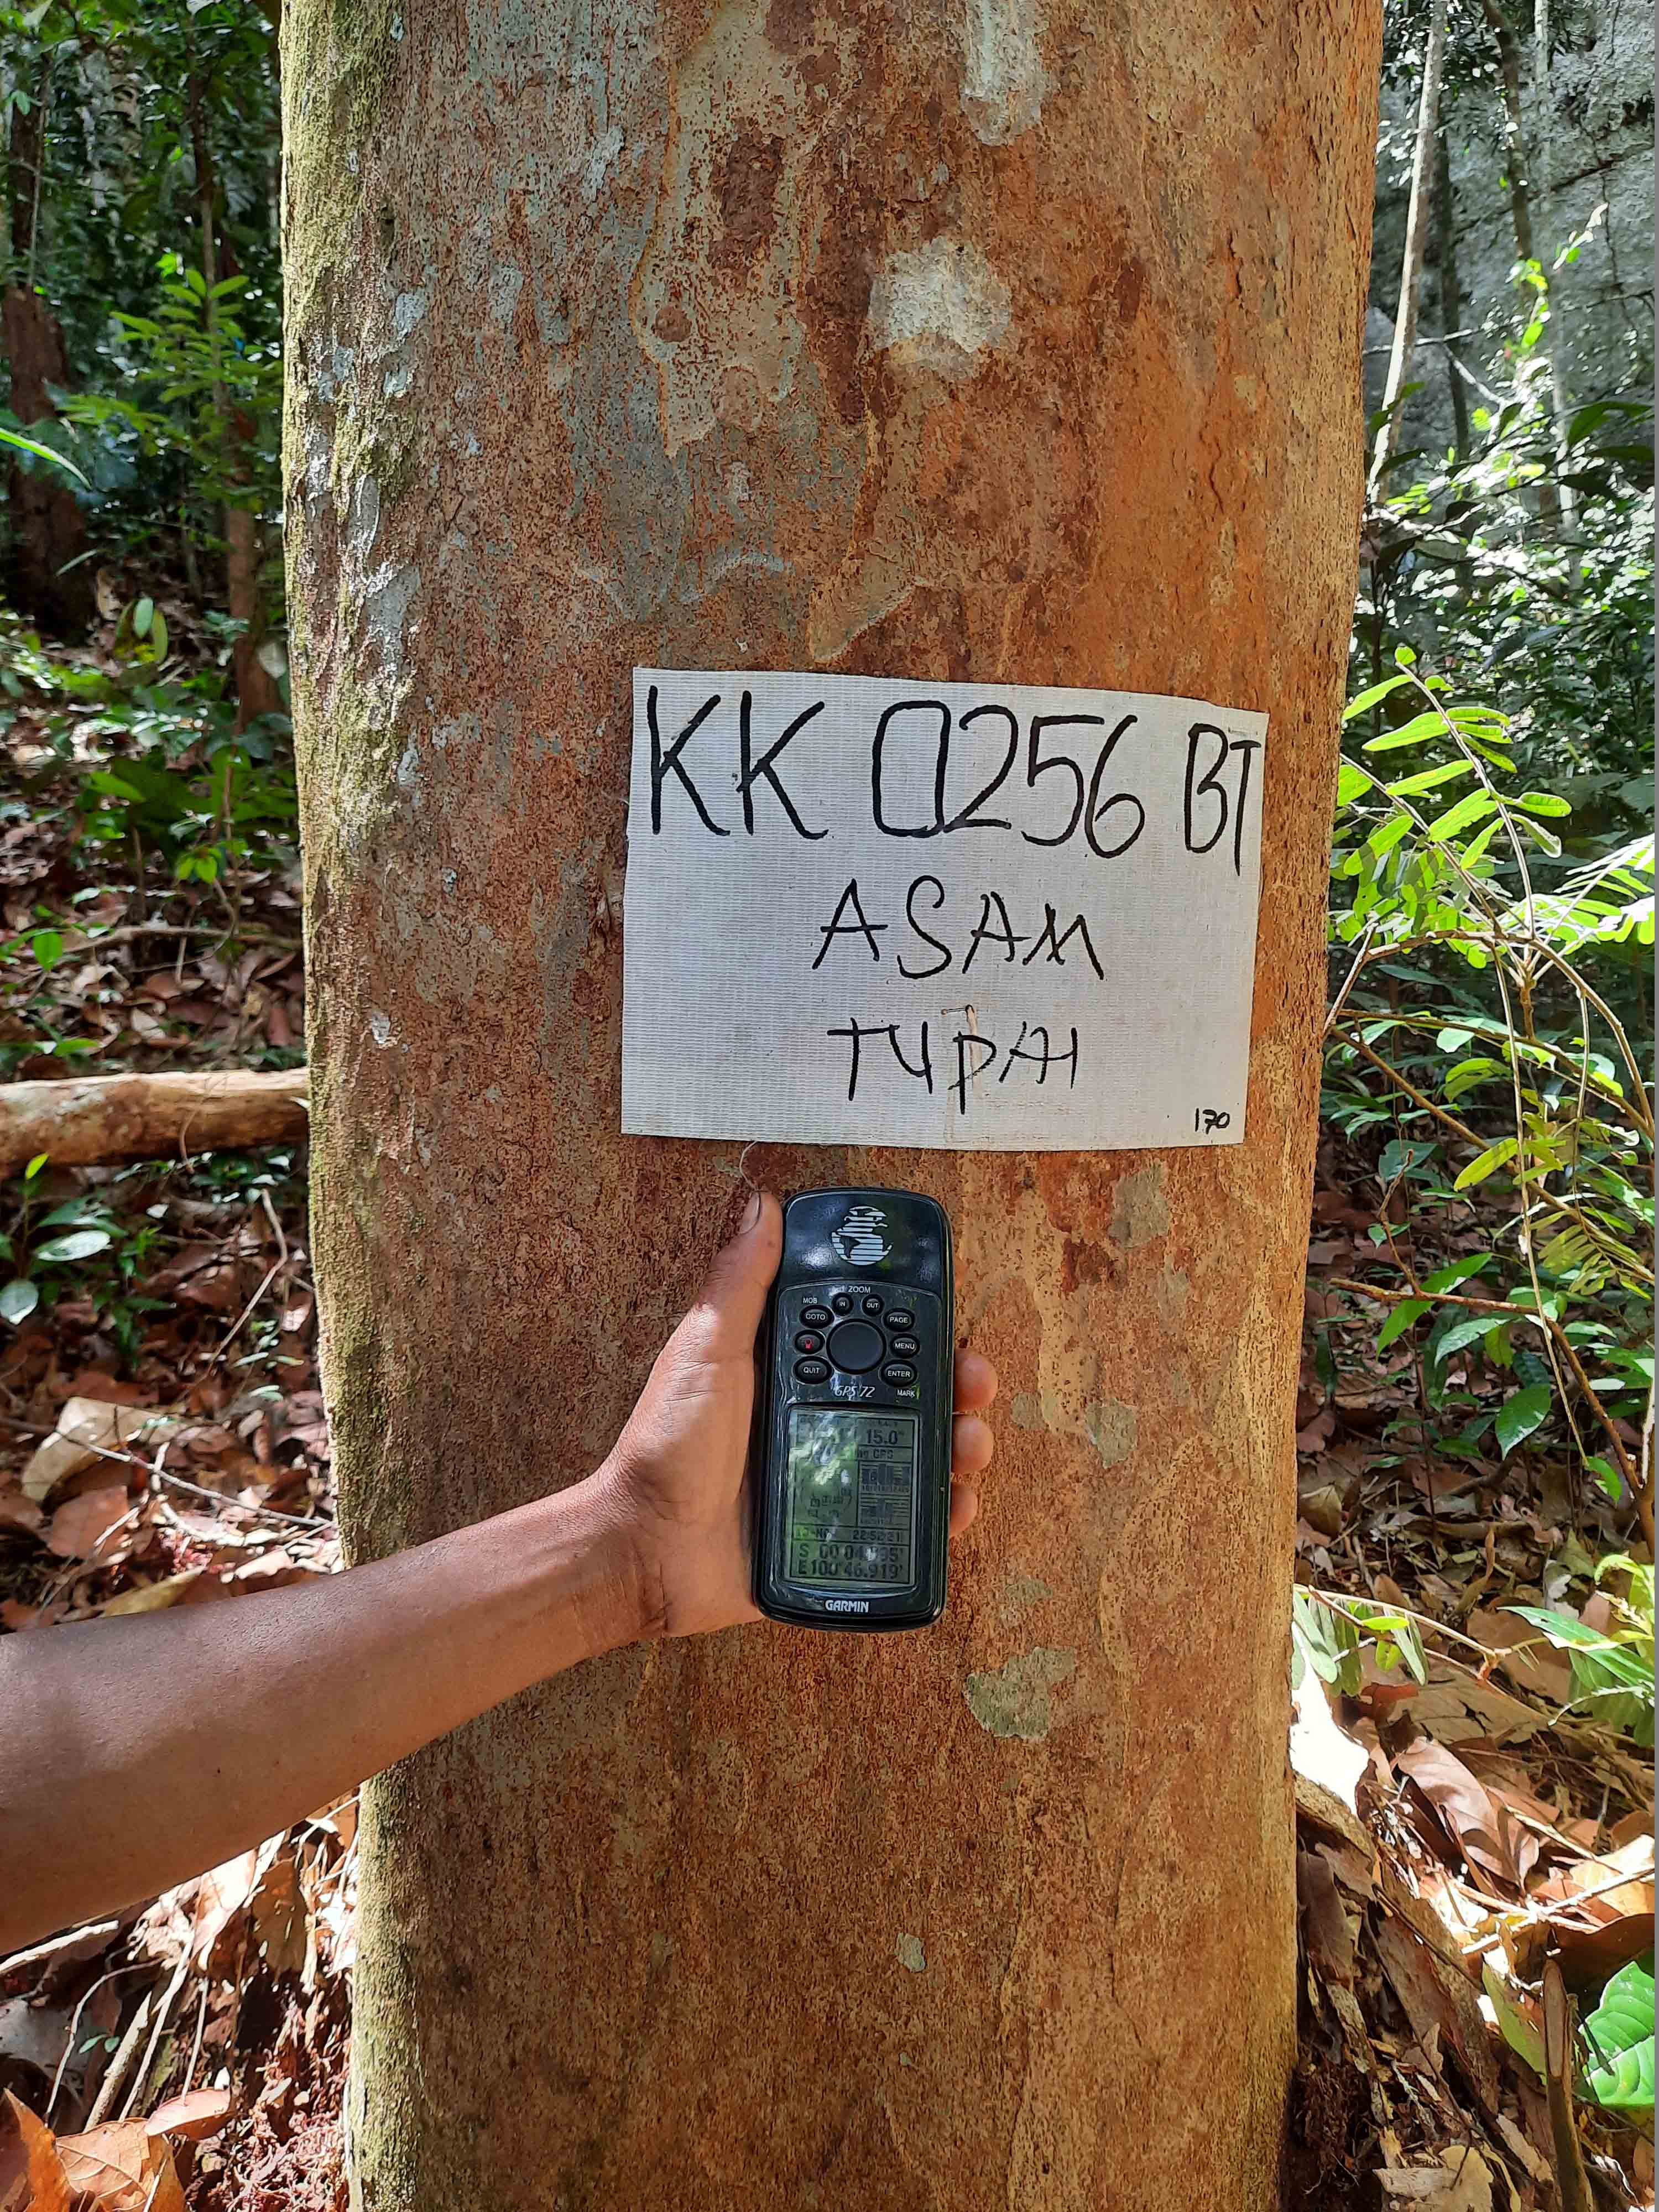 KK 0256 BT
ASAM
TUPAI
170
ZOOM
MOB IN OUT
GOTO PAGE
MENU
QUIT ENTER
GPS 72 MARK
15.0
GPS
E100°46.919'
GARMIN